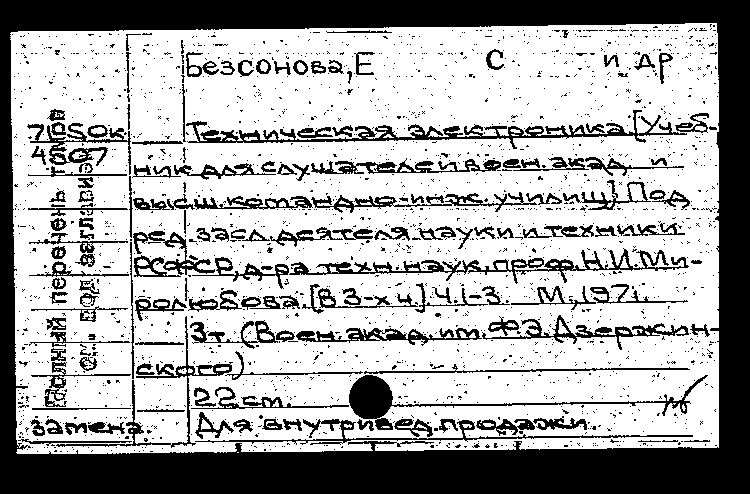 Безсонова, Е С и др
Техническая электроника. [Учеб-
ник для слушателей воен. акад. и
высш. командно-инж. училищ]. Под
ред. засл. деятеля науки и техники
РСФСР, д-ра техн. наук, проф. Н.И. Ми-
ролюбова. [В 3-х ч.] Ч. 1-3. М., 1971.
3т. (Воен. акад. им. Ф.Э. Дзержин-
ского)
22 см.
замена. Для внутривед. продажи.
Полный перечень томов
см. под заглавием